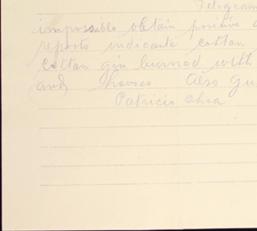 Telegram
impossible obtain positive
reports indicate cotton
cotton gin burned with
and houses Also
Patricio